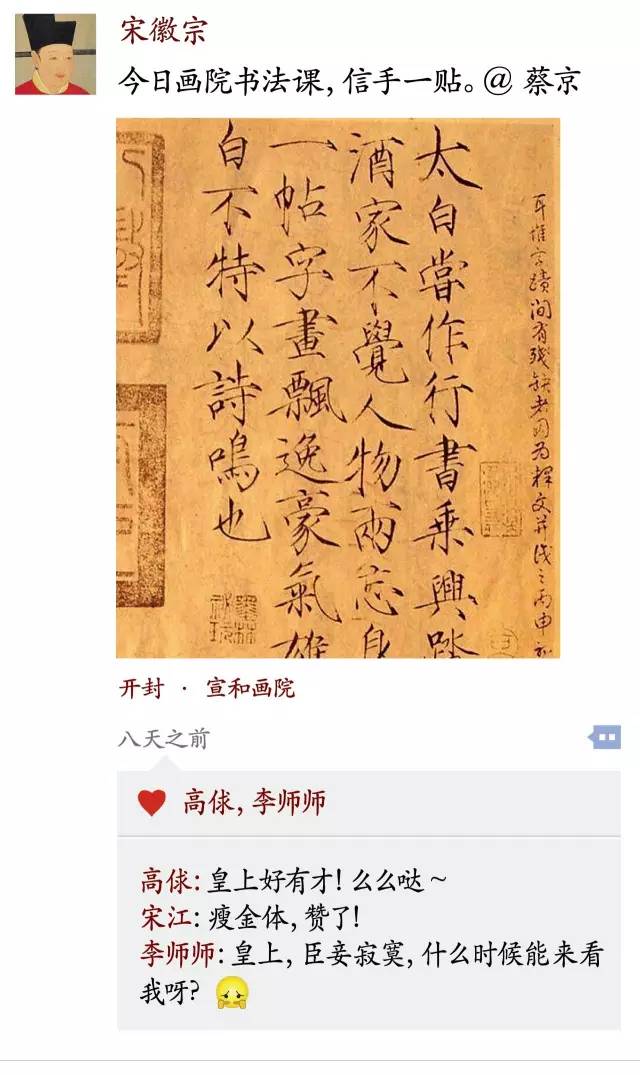 宋徽宗
今日画院书法课，信手一贴。@ 蔡京
太白嘗作行書乘興踏
酒家不覺人物兩忘身
一帖字畫飄逸豪氣雄
自不特以詩鳴也
开封 · 宣和画院
八天之前
高俅，李师师
高俅：皇上好有才！么么哒～
宋江：瘦金体，赞了！
李师师：皇上，臣妾寂寞，什么时候能来看
我呀？